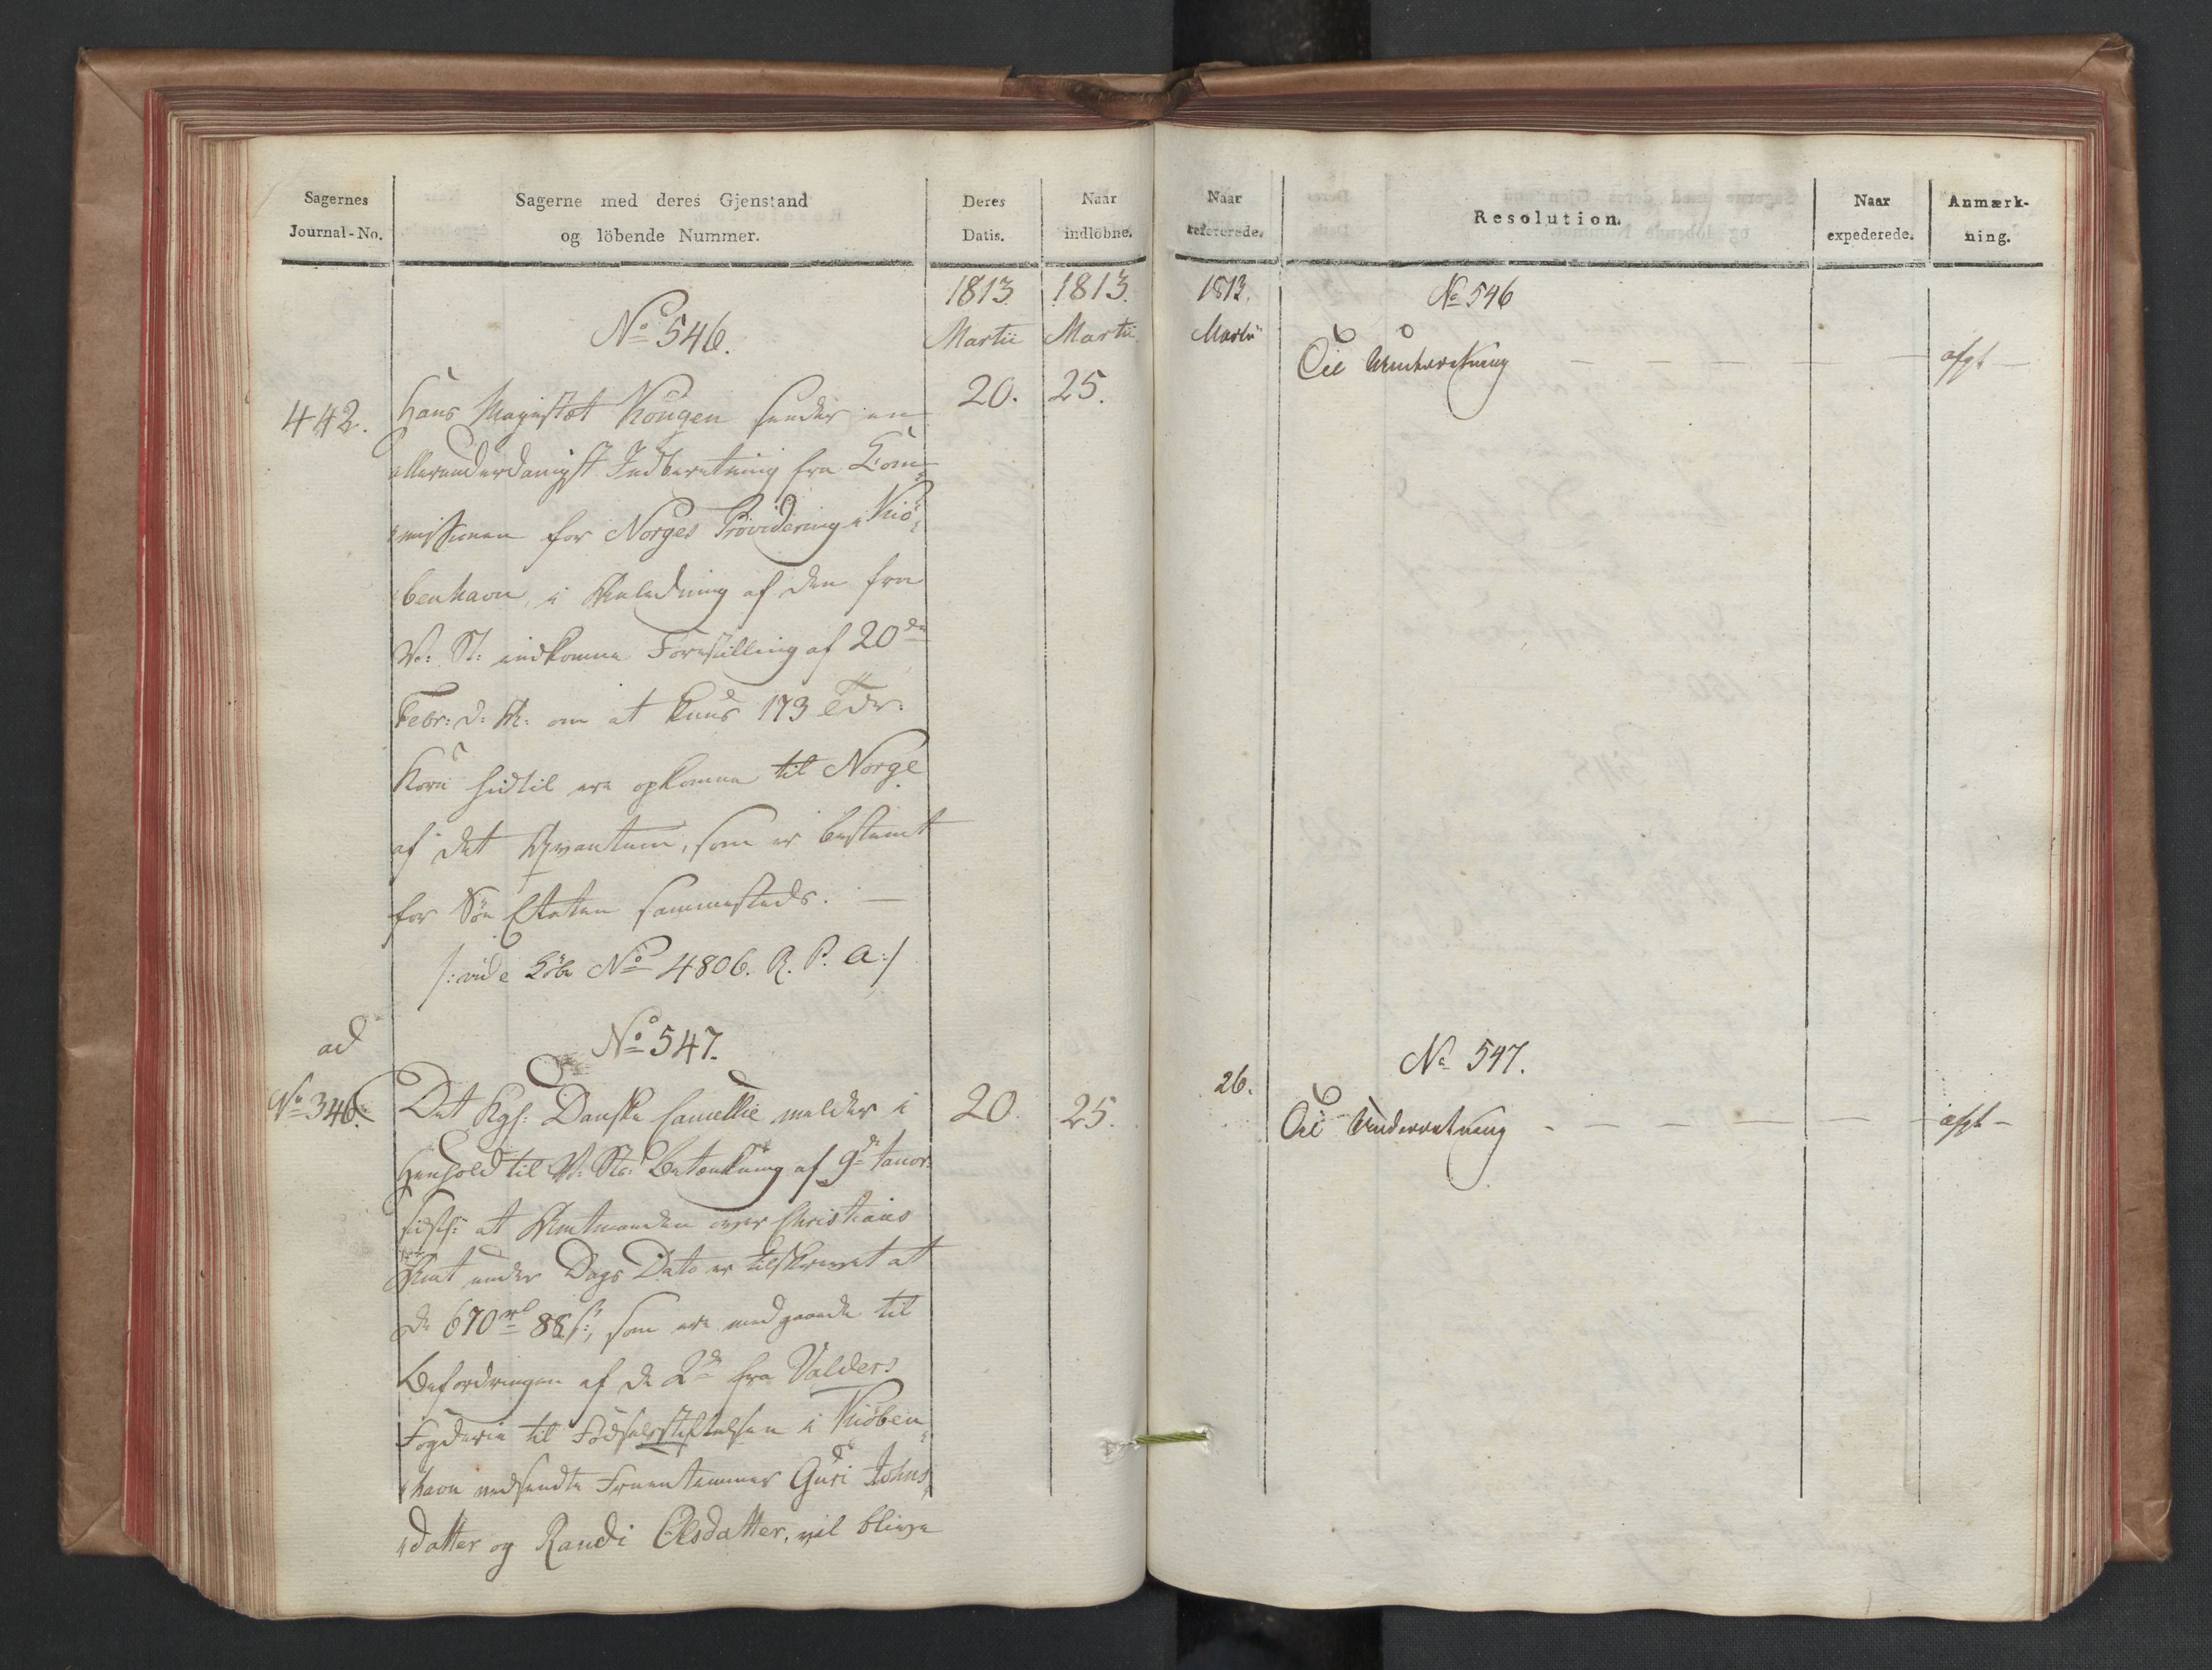 Sagernes
Journal-No.
Sagerne med deres Gjenstand
og löbende Nummer.
Deres
Datis.
Naar
indlöbne.
1813
Martii
20.
1813.
Martii
25.
442.
No 546.
Hans Majestæt Kongen sender en
allerunderdanigst Indberetning fra Com-
missionen for Norges Providering i Kiö-
benhavn, i Anledning af den fra
V: St: indkomne Forestilling af 20de
Febr: d: A: om at kuns 173 Tdr:
Korn hidtil ere opkomne til Norge
af det Qvantum, som er bestemt
for Söe Etaten sammesteds. —
/: vide Löbe No 4806. R. P. A:/
ad
No 346.
No 547.
Det Kgl: Danske Cancellie melder i
Henhold til V: Sts: Betænkning af 9de Janv:
sidstl: at Amtmanden over Christians
Amt under Dags Dato er tilskrevet at
de 670 rd 88 s:, som ere medgaaede til
Befordringen af de 2de fra Valders
Fogderie til Födselsstiftelsen i Kiöben-
havn nedsendte Fruentimmer Guri Johns-
datter og Randi Olsdatter, vil blive
20.
25.
Naar
refererede.
Resolution.
Naar
expederede.
Anmærk-
ning.
1813.
Martii
No 546
Til Underretning — — — —
afgt —
26.
No 547.
Til Underretning - — — — —
afgt —